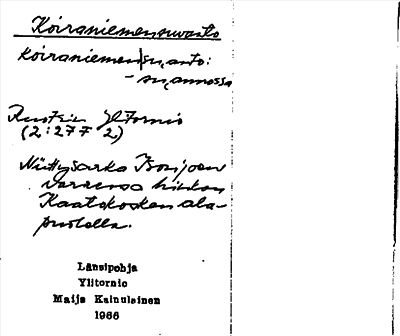 Koiraniemensuvanto
Koiraniemen|suvanto:
- suvannossa
Ruotsin Ylitornio
(2:277 2)
Niittysarka Isonjoen
varressa hiukan
Kaatokosken ala-
puolella.
Länsipohja
Ylitornio
Maija Kainulainen
1966